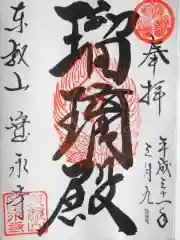 奉拝
平成三十一年
三月九日
瑠璃殿
東叡山寛永寺